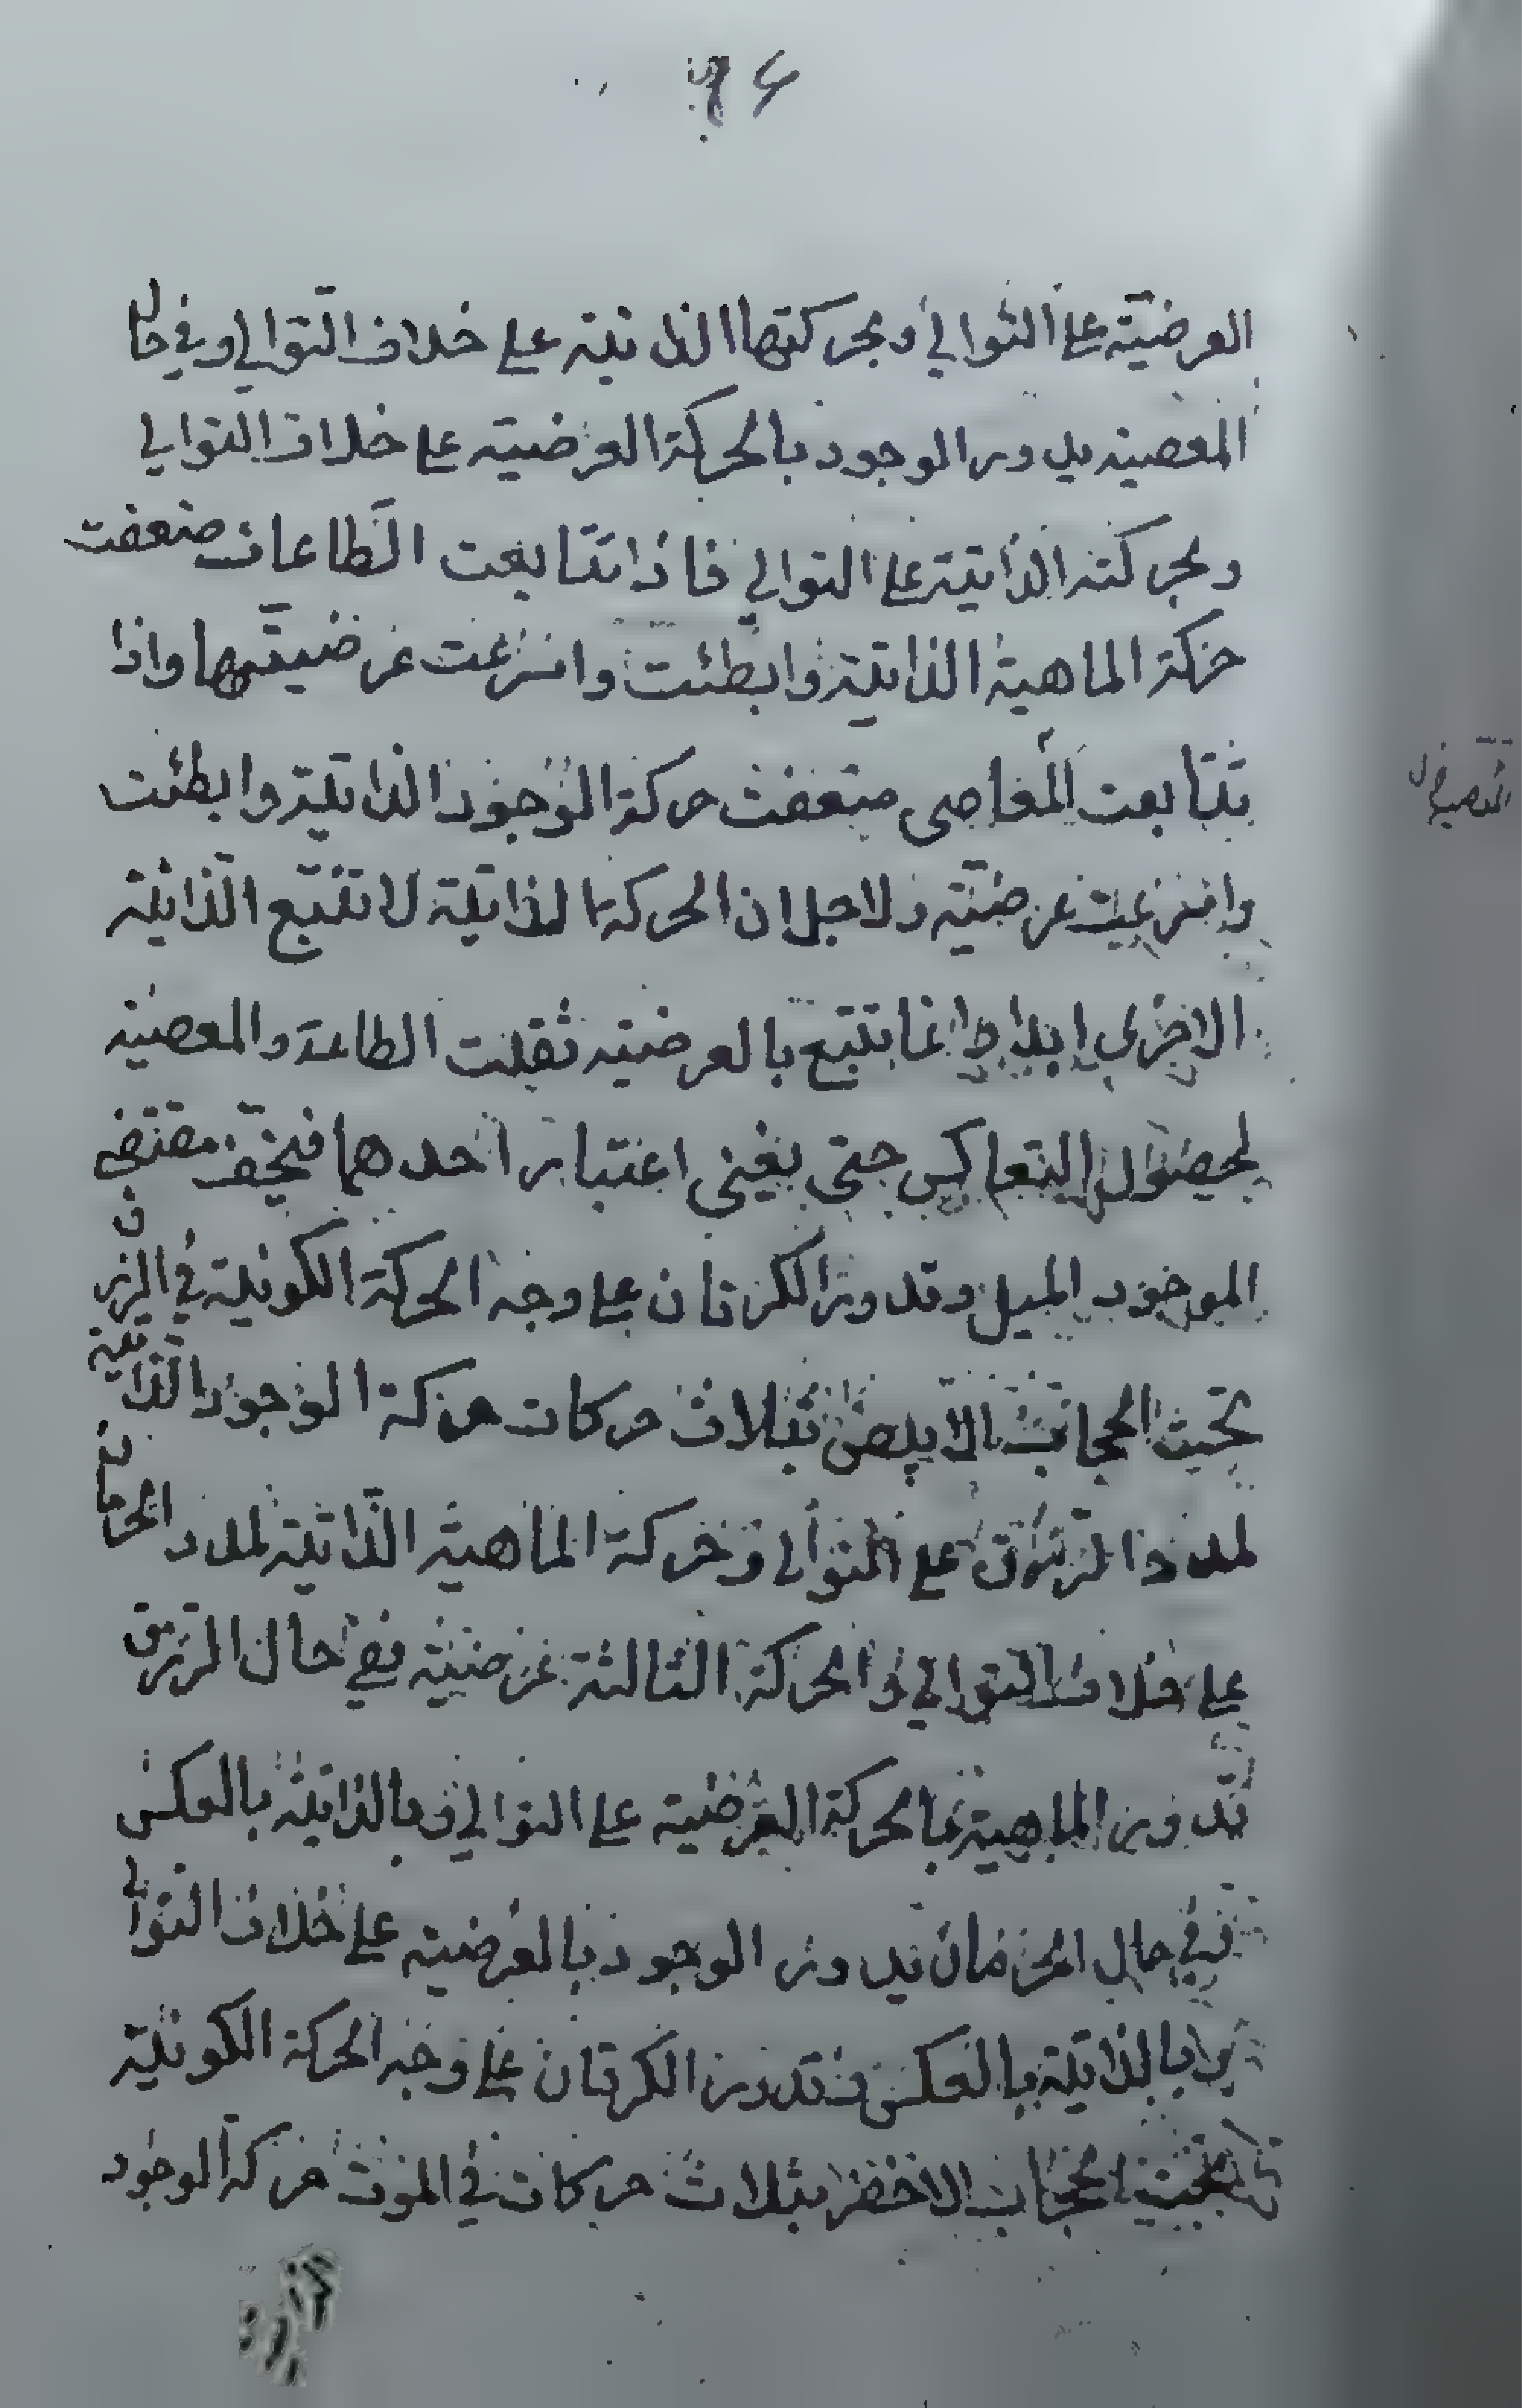 ٩٤
العرضيّة على التوالي وبحركتها الذاتية على خلاف التّوالي وفي حال
المعصية يدور الوجود بالحركة العرضية على خلاف التوالي
وبحركته الذاتية على التوالي فاذا تتابعت الطّاعات ضعفت
حركة الماهية الذاتية وابطئت واسرعت عرضيّتها واذا
تتابعت المعاصى ضعفت حركة الوجود الذاتية وابطئت
واسرعت عرضيّته ولاجل ان الحركة الذاتية لا تتبع الذاتية
الاخرى ابدا وانما تتبع بالعرضية ثقلت الطاعة والمعصية
لحصول التعاكس حتى يفنى اعتبار احدهما فيخفّ مقتضى
الموجود الميل وتدور الكرتان على وجه الحركة الكونية في الرزق
تحت الحجاب الابيض بثلاث حركات حركة الوجود الذاتية
لمدد الرزق على التوالى وحركة الماهية الذاتية لمدد الحرمان
على خلاف التوالي والحركة الثالثة عرضية ففي حال الرزق
تدور الماهية بالحركة العرضية على التوالي وبالذاتية بالعكس
وفي حال الحرمان يدور الوجود بالعرضية على خلاف التوالى
وبالذاتية بالعكس وتدور الكرتان على وجه الحركة الكونية
تحت الحجاب الاخضر بثلاث حركات في الموت حركة الوجود